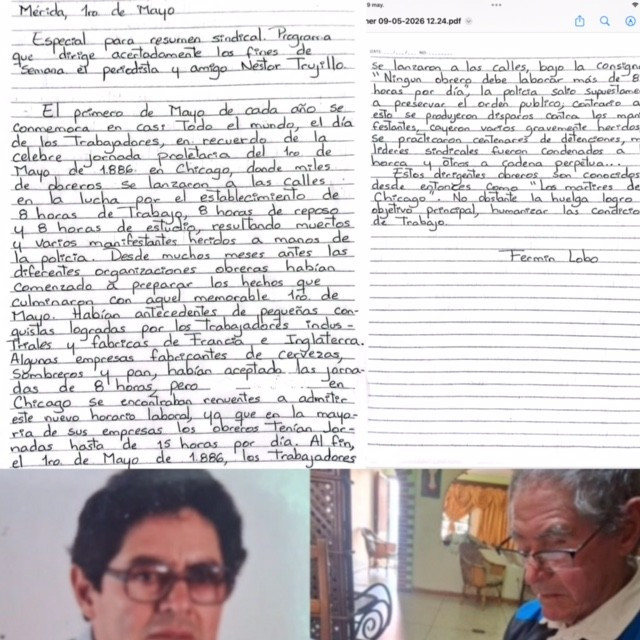 Mérida, 1ro. de Mayo
Especial para resumen sindical. Programa
que dirige acertadamente los fines de
semana el periodista y amigo Néstor Trujillo.
El primero de Mayo de cada año se
conmemora en casi todo el mundo, el día
de los Trabajadores, en recuerdo de la
celebre jornada proletaria del 1ro. de
Mayo de 1.886. en Chicago, donde miles
de obreros se lanzaron a las calles
en la lucha por el establecimiento de
8 horas de Trabajo, 8 horas de reposo
y 8 horas de estudio, resultando muertos
y varios manifestantes heridos a manos de
la policía. Desde muchos meses antes las
diferentes organizaciones obreras habían
comenzado a preparar los hechos que
culminaron con aquel memorable 1ro. de
Mayo. Habían antecedentes de pequeñas con-
quistas logradas por los Trabajadores indus-
Triales y fabricas de Francia e Inglaterra.
Algunas empresas fabricantes de cervezas,
sombreros y pan, habían aceptado las jorna-
das de 8 horas, pero en
Chicago se encontraban renuentes a admitir
este nuevo horario laboral, ya que en la mayo-
ría de sus empresas los obreros tenían jor-
nadas hasta de 15 horas por día. Al fin,
el 1ro. de Mayo de 1.886, los Trabajadores
9 may.
ner 09-05-2026 12.24.pdf
se lanzaron a las calles, bajo la consign
"Ningun obrero debe laborar más de 8
horas por día", la policía salto supuestame
a preservar el orden publico, contrario a
esto se produjeron disparos contra los man
festantes, cayeron varios gravemente heridos
se practicaron centenares de detenciones, m
líderes sindicales fueron condenados a
horca y otros a cadena perpetua...
Estos dirigentes obreros son conocidos
desde entonces como "Los mártires de
Chicago". No obstante la huelga logro
objetivo principal, humanizar las condicio
de Trabajo.
Fermín Lobo